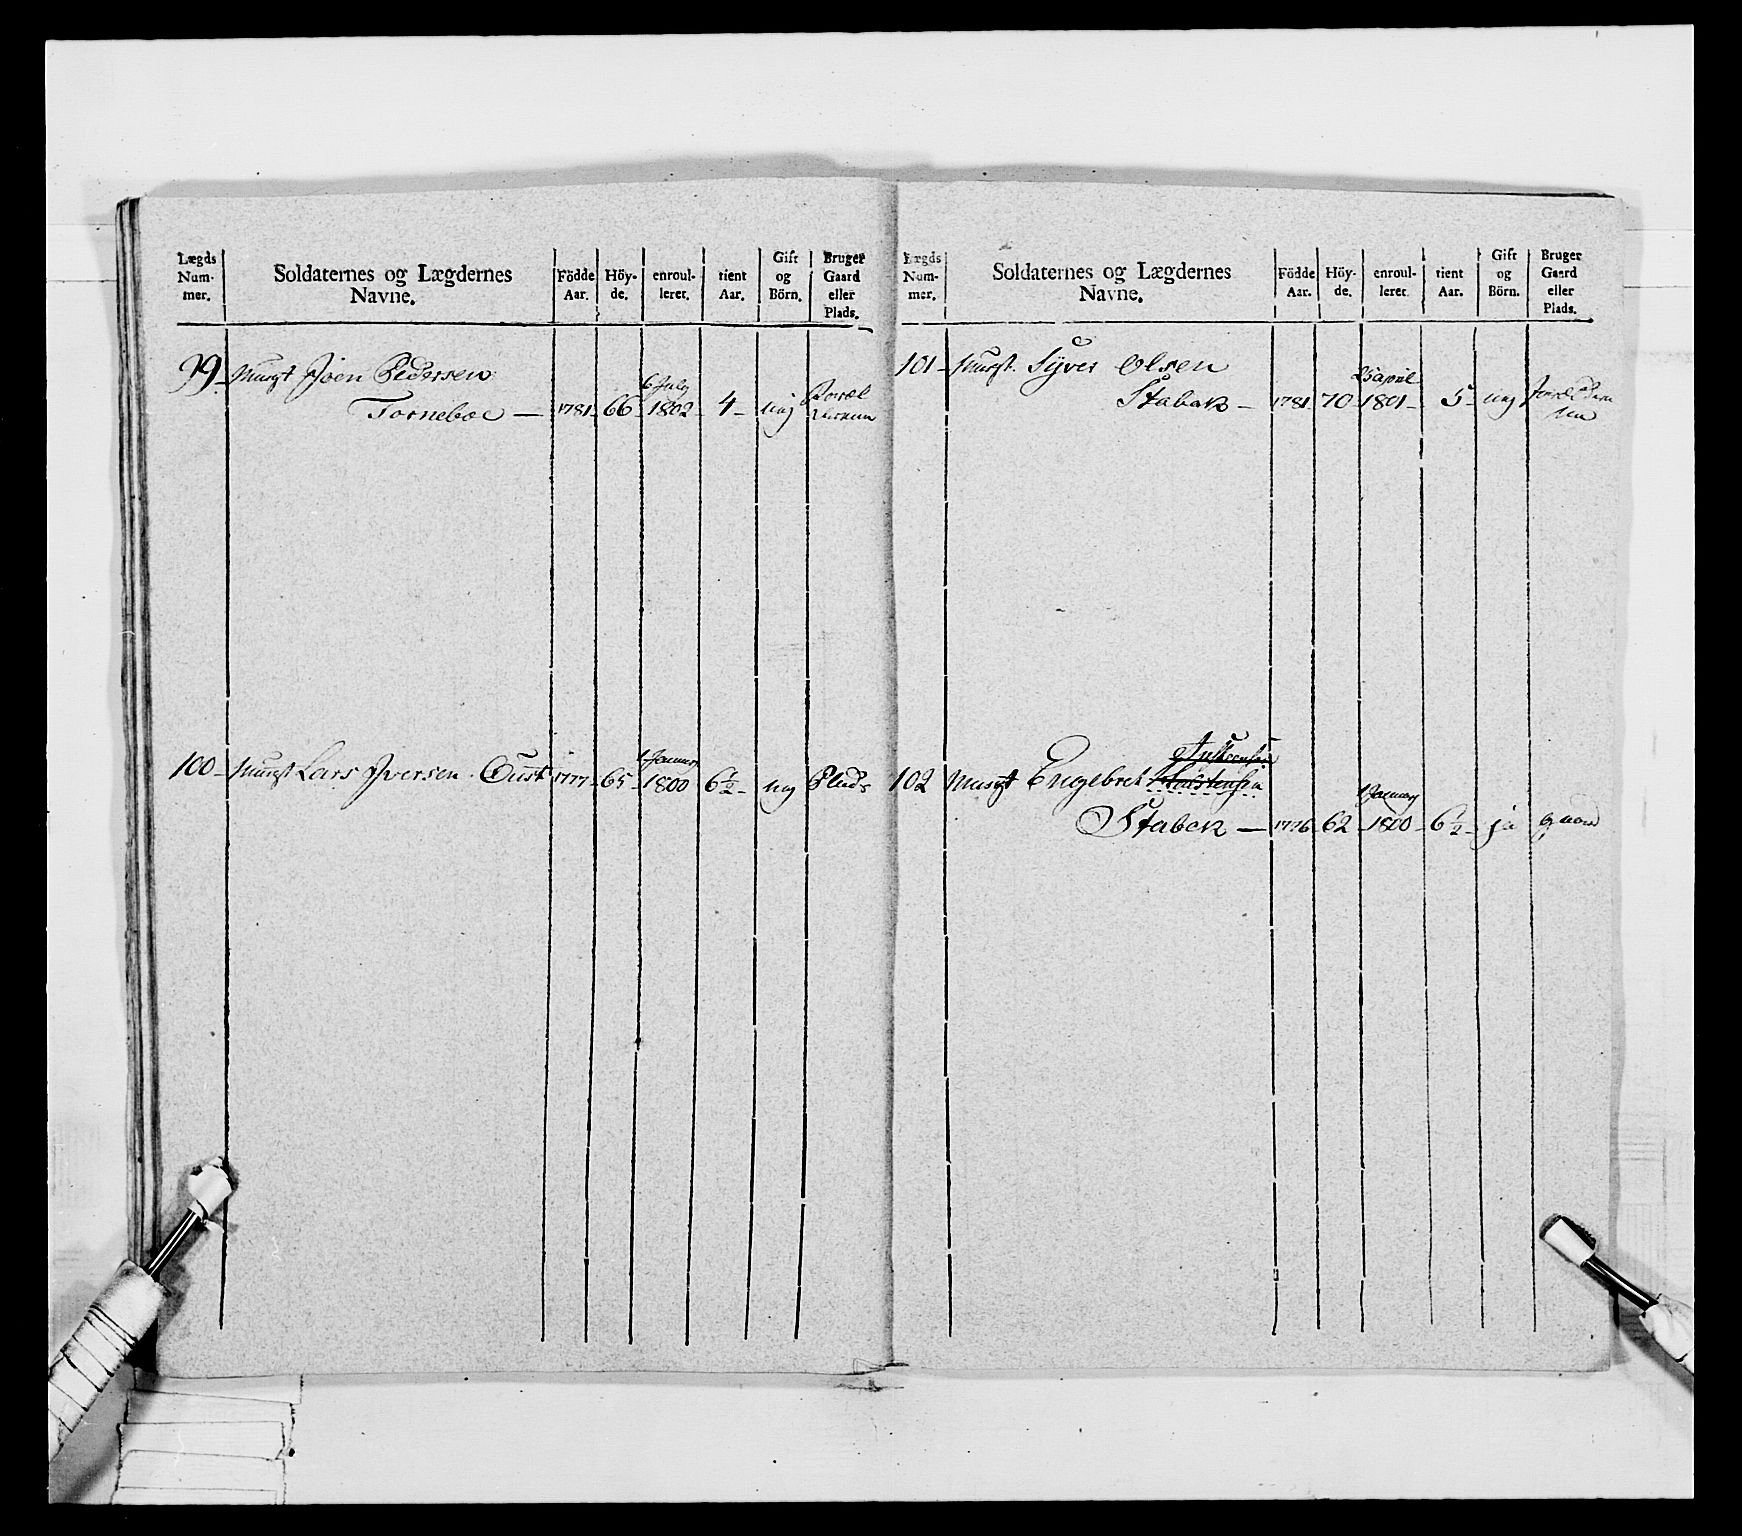 Lægds Num- mer. Soldaternes og Lægdernes Navne. Födde Aar. Höy- de. enroul- leret. tient Aar. Gift og Börn. Bruger Gaard eller Plads.
99. Musqt Joen Pedersen
Torneboe — 1781 66 6 July 1802 4 — nej
100 — Musqt Lars Iversen Oust 1777 65 1 Januar 1800 6½ nej Plads
Lægds Num- mer. Soldaternes og Lægdernes Navne. Födde Aar. Höy- de. enroul- leret. tient Aar. Gift og Börn. Bruger Gaard eller Plads.
101 — Musqt. Syver Olsen
Stabæk — 1781 70 25 april 1801 5 nej
102 Musqt Engebret
Stabek — 1776 62 1 Januar 1800 6½ ja gaard